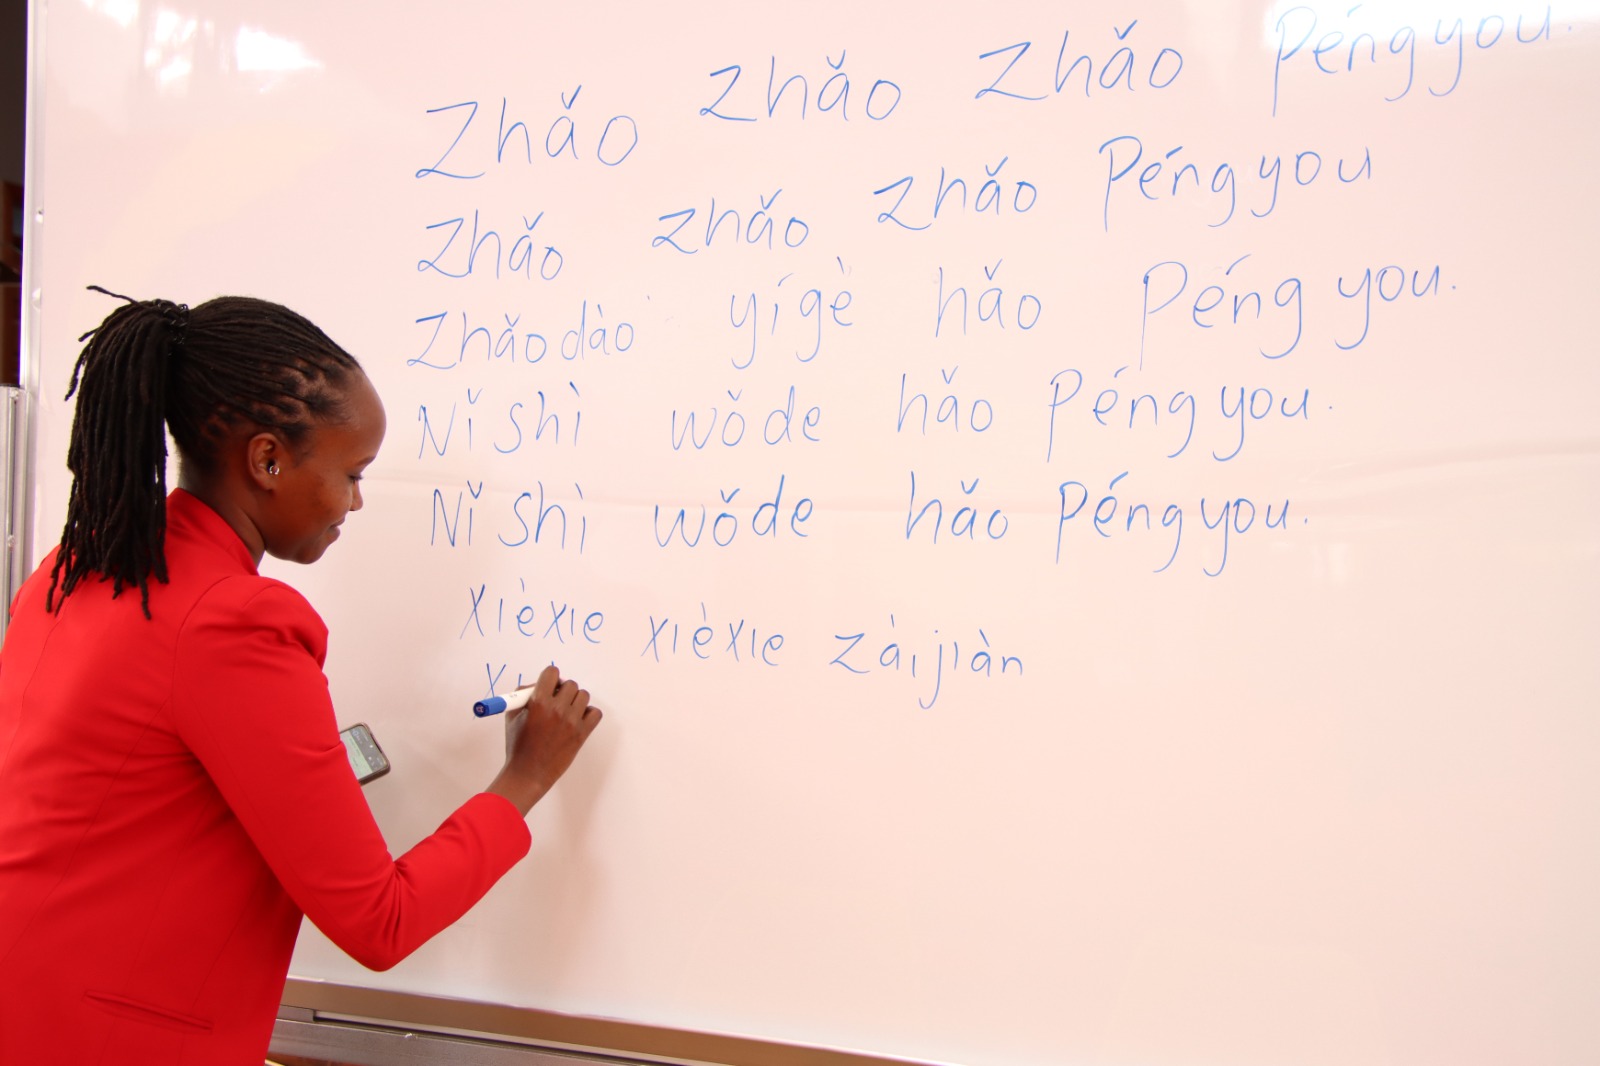 Zhǎo zhǎo zhǎo Péngyou.
Zhǎo zhǎo zhǎo Péngyou
Zhǎodào yígè hǎo Péngyou.
Nǐ shì wǒde hǎo Péngyou.
Nǐ shì wǒde hǎo Péngyou.
Xièxie xièxie zàijiàn